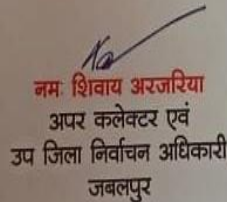 नमः शिवाय अरजरिया
अपर कलेक्टर एवं
उप जिला निर्वाचन अधिकारी
जबलपुर